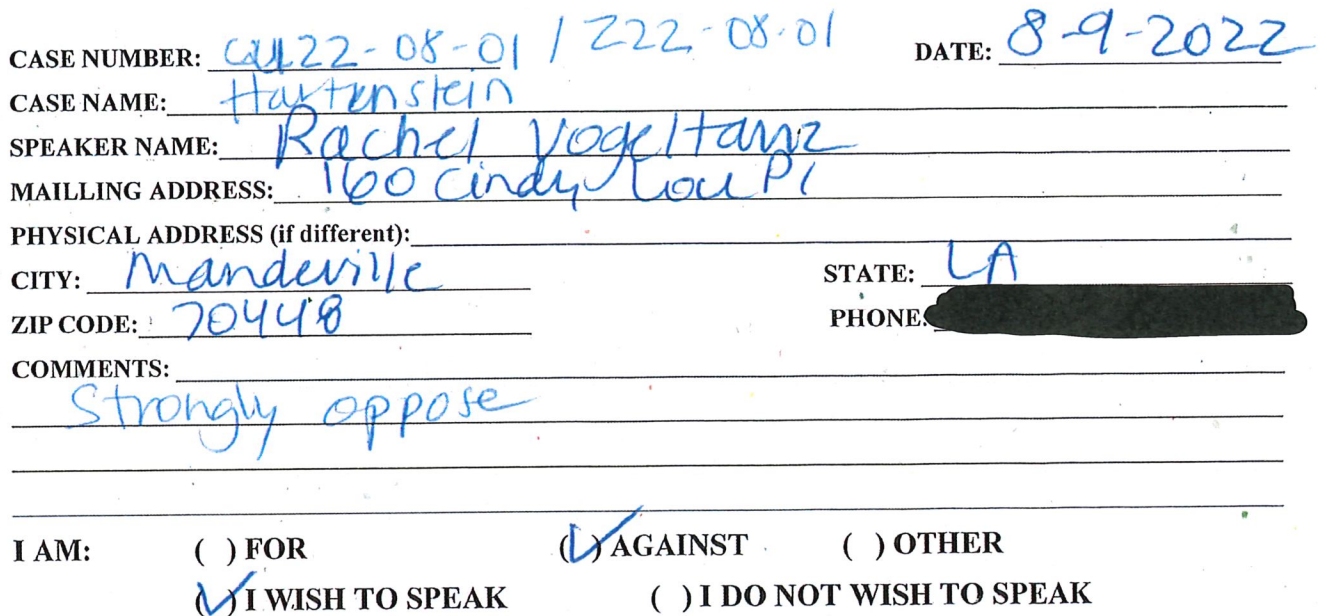 CASE NUMBER: CU22-08-01 / Z22-08-01 DATE: 8-9-2022
CASE NAME: Hartenstein
SPEAKER NAME: Rachel Vogeltanz
MAILLING ADDRESS: 160 Cindy Lou Pl
PHYSICAL ADDRESS (if different):
CITY: Mandeville STATE: LA
ZIP CODE: 70448 PHONE:
COMMENTS:
Strongly oppose
I AM: ( ) FOR (✓) AGAINST ( ) OTHER
(✓) I WISH TO SPEAK ( ) I DO NOT WISH TO SPEAK